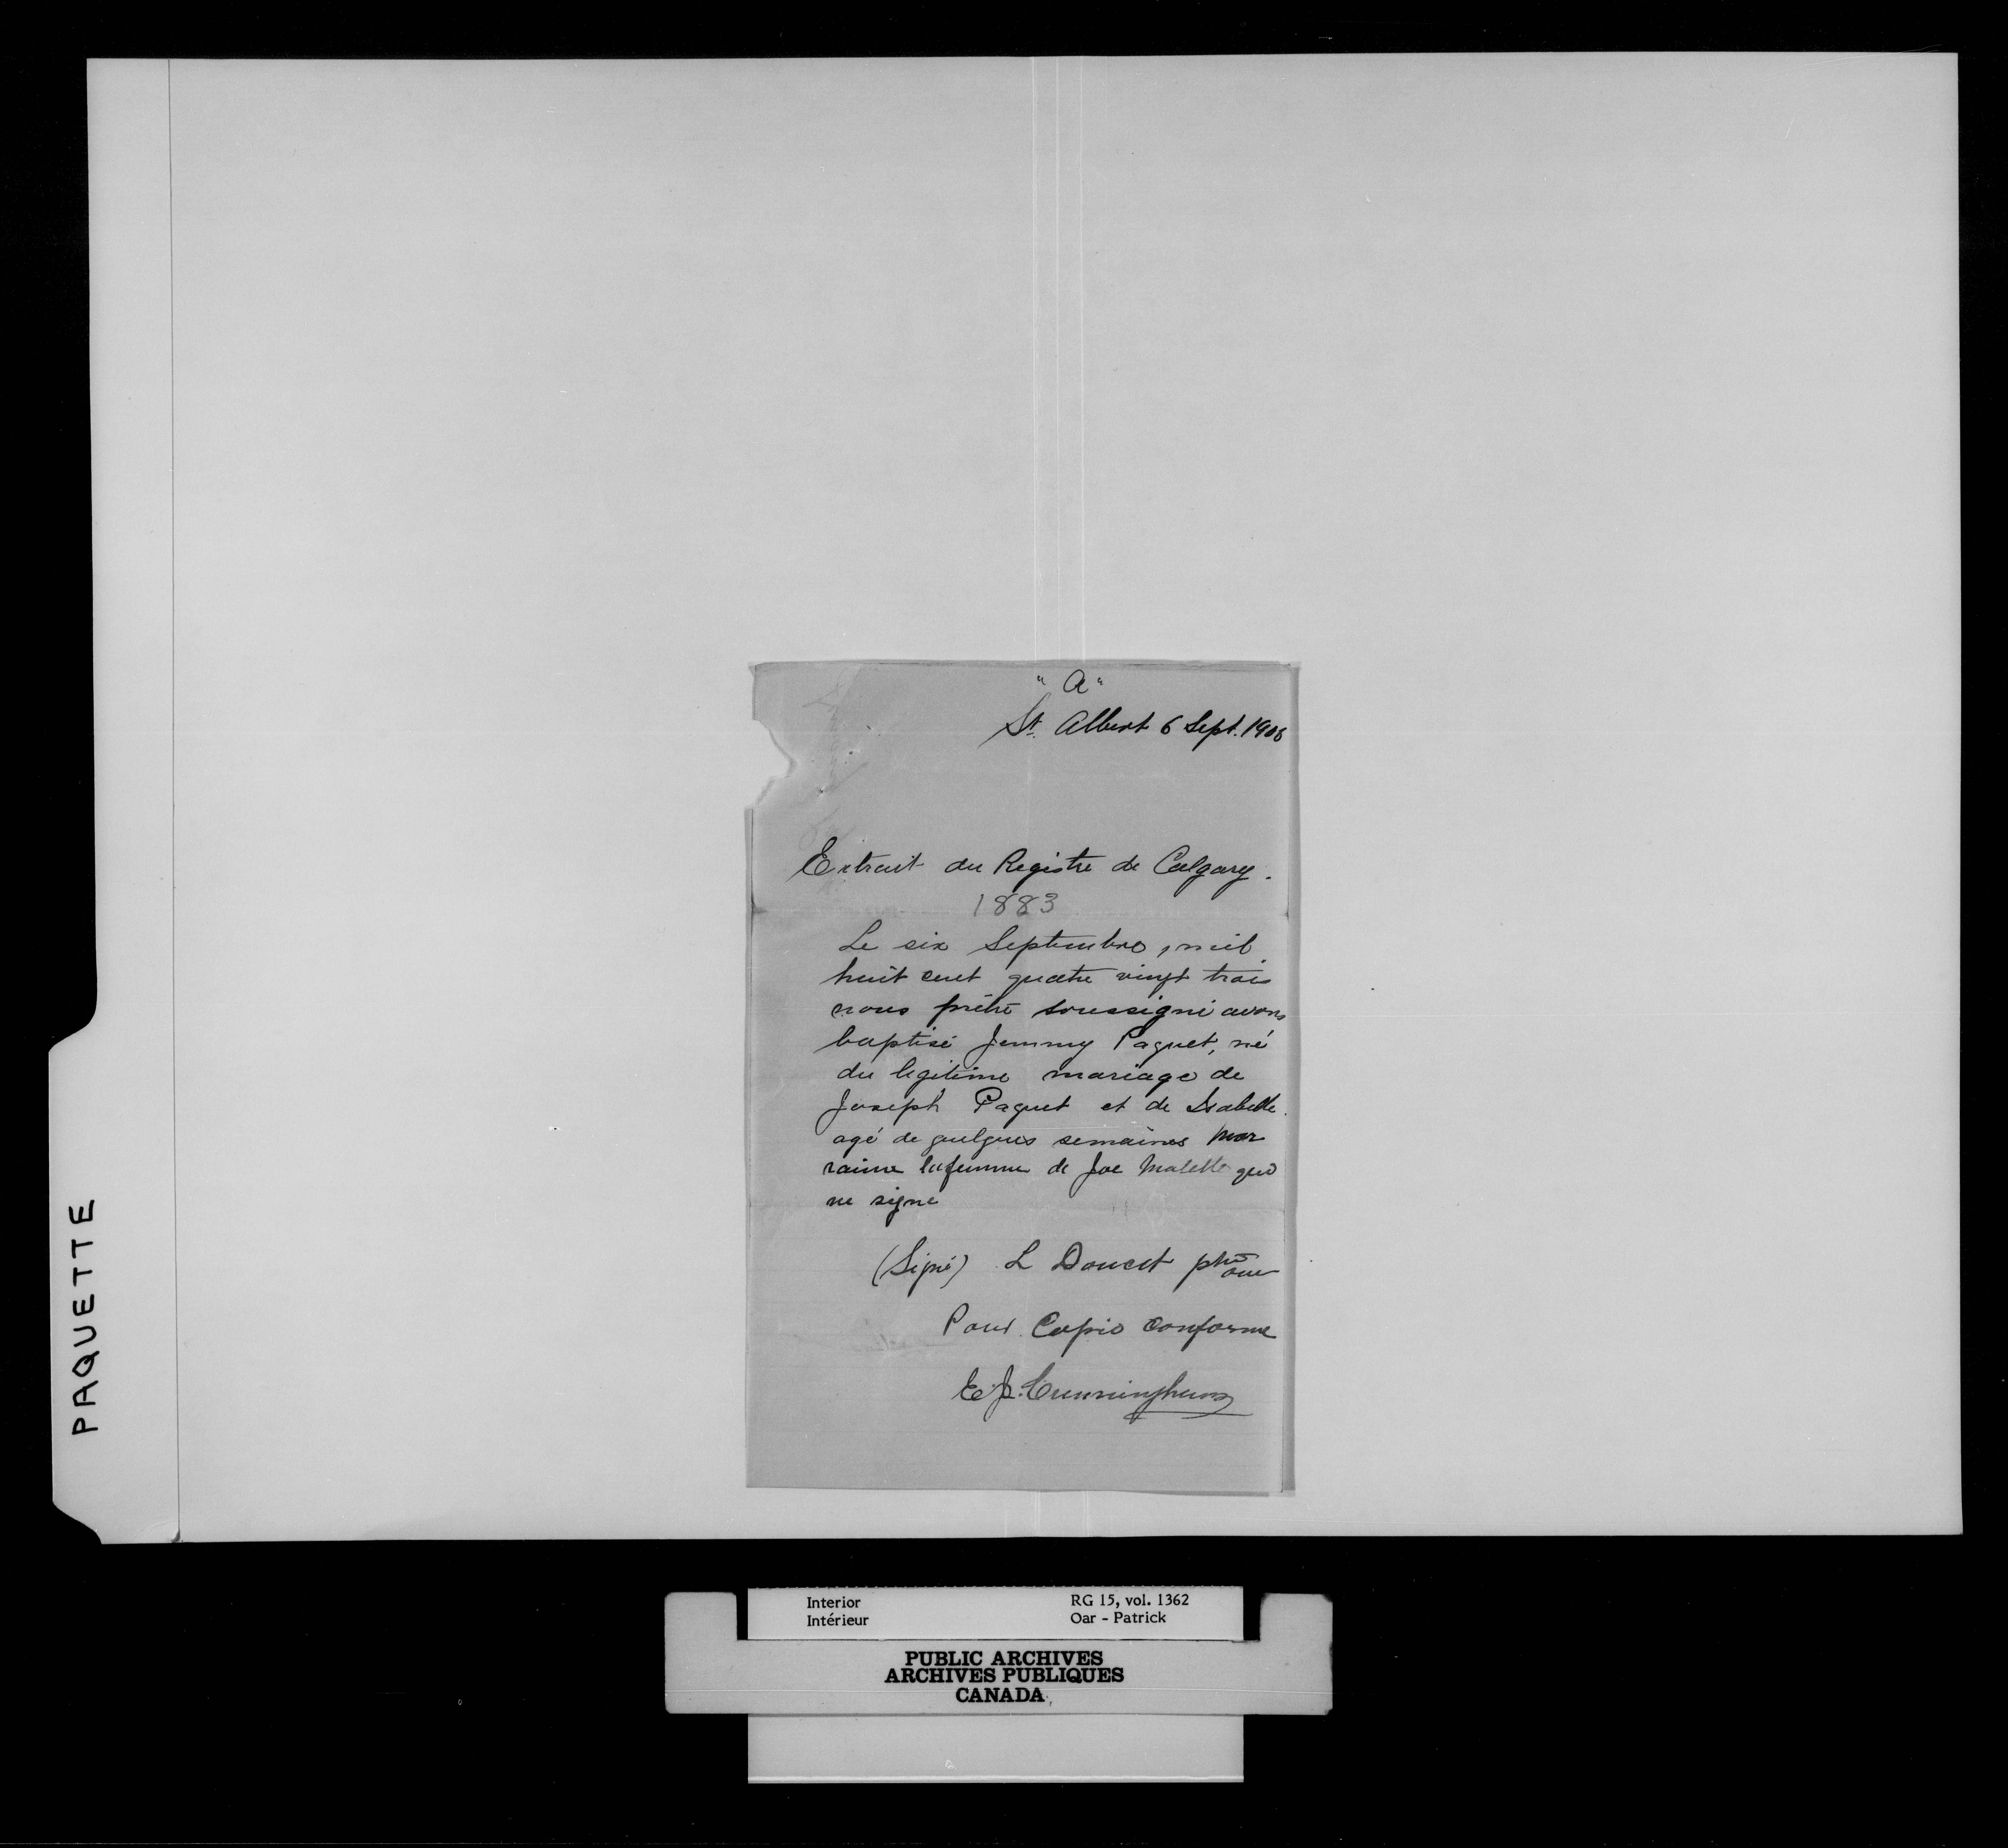 "A"
St. Albert 6 Sept. 1906
Extrait du Registre de Calgary.
1883
Le six Septembre, mil
huit cent quatre vingt trois
nous prêtre soussigné avons
baptisé Jemmy Paquet, né
du legitime mariage de
Joseph Paquet et de Isabelle
agé de quelques semaines Mar
raine la femme de Joe Malette qui
ne signe
(Signé) L Doucet ptre omi
Pour Copie Conforme
E.J. Cunningham
PAQUETTE
Interior
Intérieur
RG 15, vol. 1362
Oar - Patrick
PUBLIC ARCHIVES
ARCHIVES PUBLIQUES
CANADA